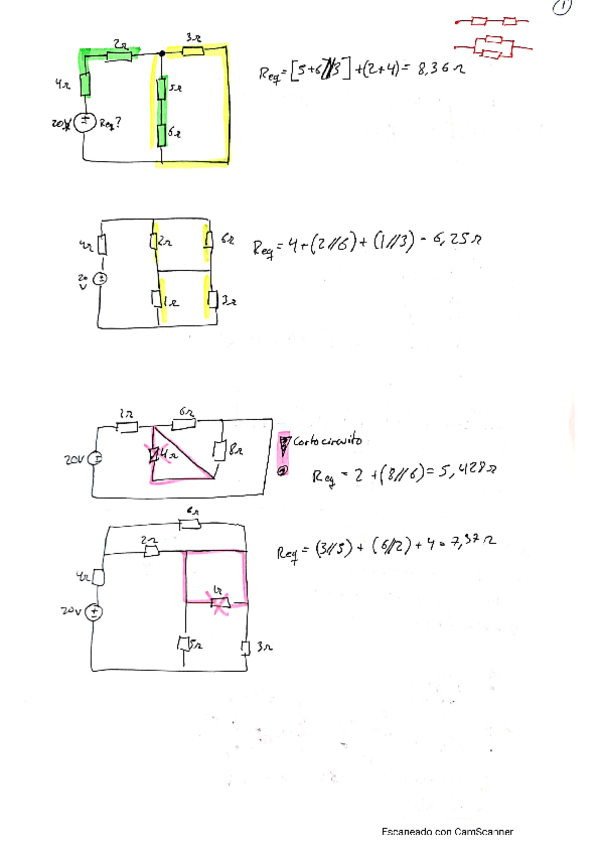 1
2Ω
3Ω
4Ω
5Ω
20V
Req?
6Ω
Req = [5+6//3] + (2+4) = 8,36 Ω
4Ω
2Ω
6Ω
20
V
1Ω
3Ω
Req = 4 + (2//6) + (1//3) = 6,25 Ω
2Ω
6Ω
20V
4Ω
8Ω
Cortocircuito
Req = 2 + (8//6) = 5,428 Ω
6Ω
2Ω
4Ω
1Ω
20V
5Ω
3Ω
Req = (3//5) + (6//2) + 4 = 7,37 Ω
Escaneado con CamScanner